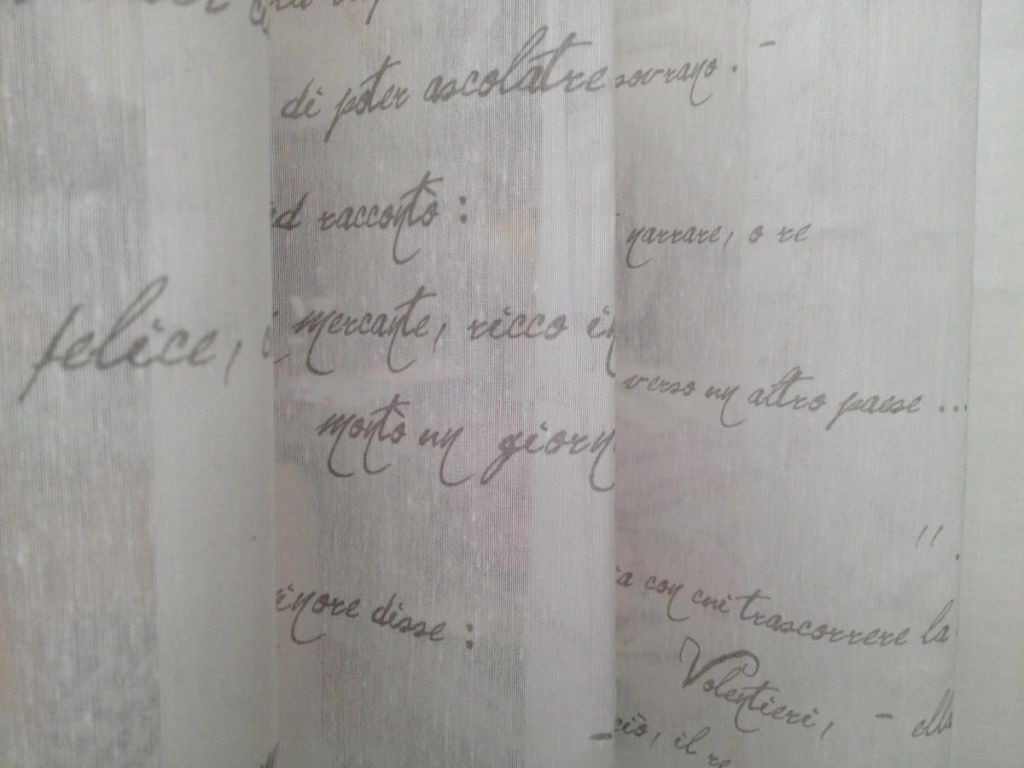 di poter ascolatre sovrano. -
racconto : narrare, o re
felice, mercante, ricco in
verso un altro paese ...
montò un giorn
inore disse :
con cui trascorrere la
Volentieri, - ella
il re